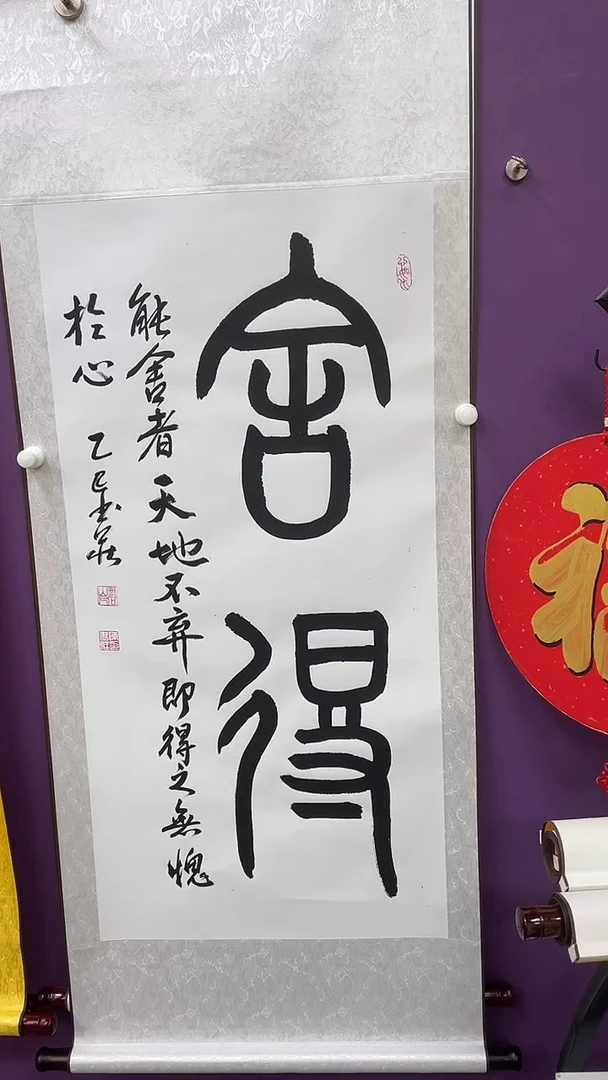 舍得
能舍者天地不弃即得之無愧
於心 乙巳
福